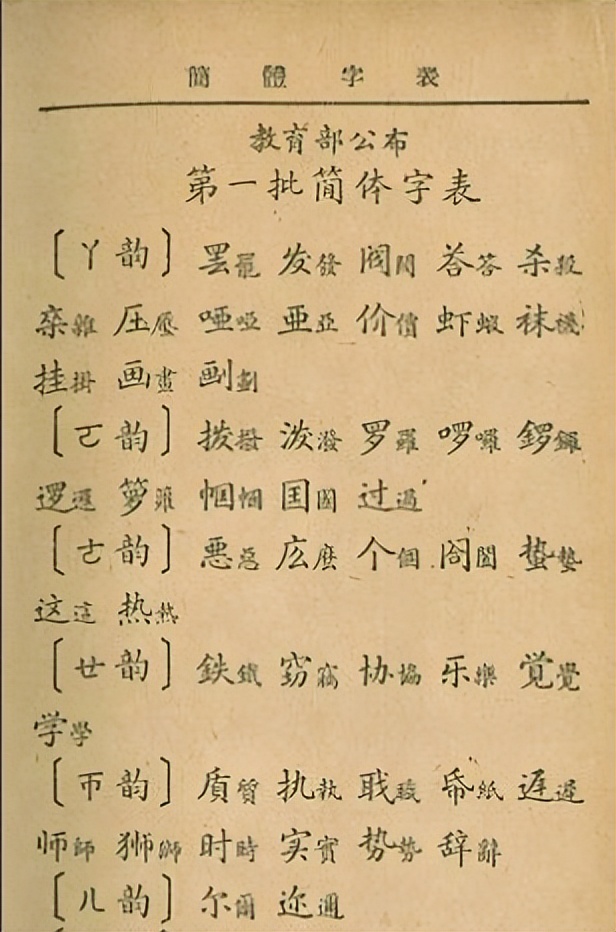 簡體字表
教育部公布
第一批简体字表
〔ㄚ韵〕 罢罷 发發 阀閥 荅答 杀殺
杂雜 压壓 唖啞 亜亞 价價 虾蝦 袜襪
挂掛 画畫 㓰劃
〔ㄛ韵〕 拨撥 泼潑 罗羅 啰囉 锣鑼
逻邏 箩籮 帼幗 囯國 过過
〔ㄜ韵〕 悪惡 庅麼 个個 阁閣 蛰蟄
这這 热熱
〔ㄝ韵〕 鉄鐵 窃竊 协協 乐樂 覚覺
学學
〔ㄭ韵〕 质質 执執 职職 帋紙 遅遲
师師 狮獅 时時 实實 势勢 辞辭
〔ㄦ韵〕 尔爾 迩邇